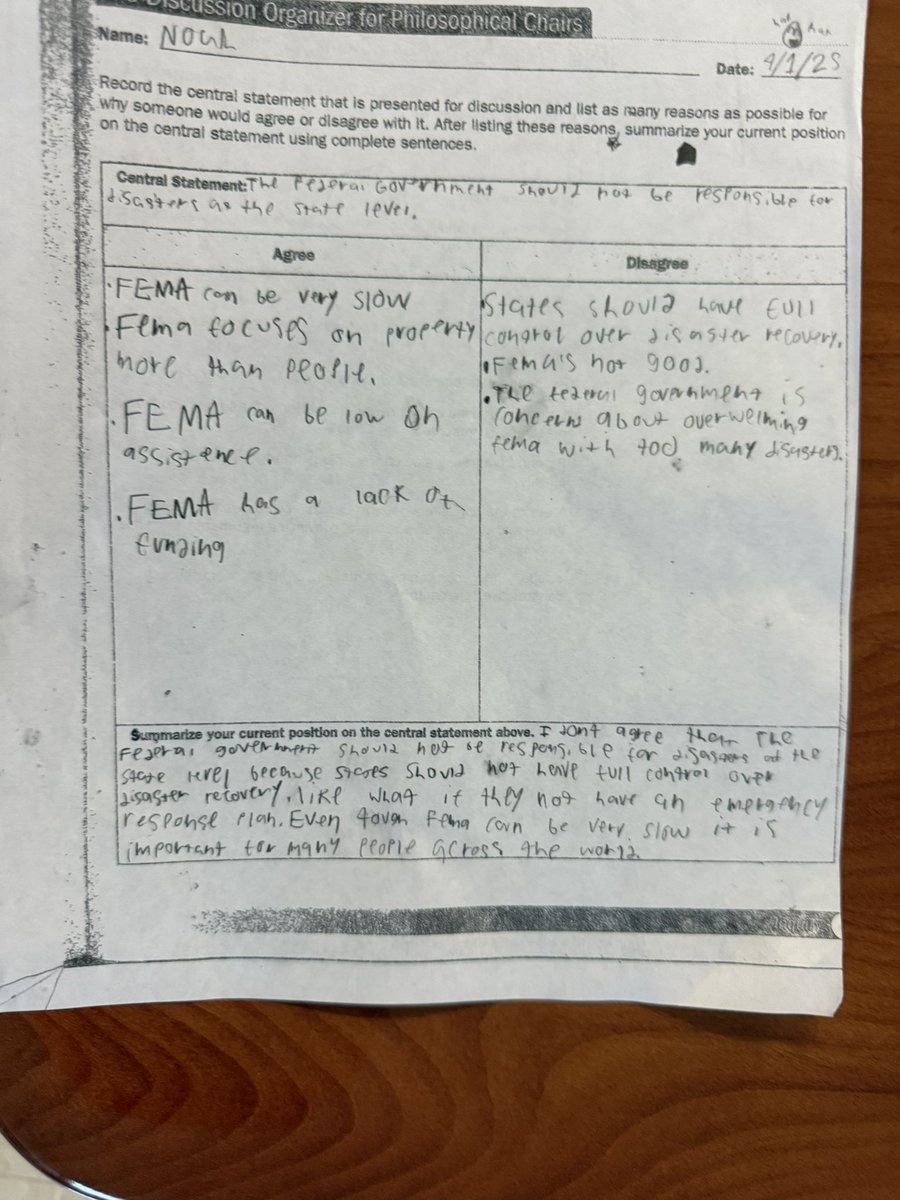 Discussion Organizer for Philosophical Chairs
Name: Noah
Date: 4/1/25
Record the central statement that is presented for discussion and list as many reasons as possible for
why someone would agree or disagree with it. After listing these reasons, summarize your current position
on the central statement using complete sentences.
Central Statement: The Federal Government should not be responsible for
disasters at the state level.
Agree
• FEMA can be very slow
• Fema focuses on property
more than people.
• FEMA can be low on
assistence.
• FEMA has a lack of
funding
Disagree
States should have full
congrol over disaster recovery.
• Fema's not good.
• The federal government is
concerns about overwelming
fema with too many disasters.
Summarize your current position on the central statement above. I dont agree that The
Federal government should not be responsible for disasters at the
state level because states should not have full control over
disaster recovery, like what if they not have an emergency
response plan. Even though Fema can be very slow it is
important for many people across the world